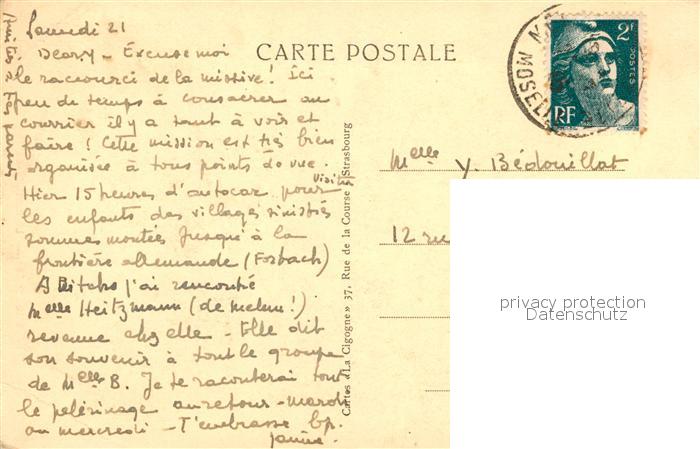 Samedi 21
Deary - Excuse moi
le raccourci de la missive ! Ici
peu de temps à consacrer au
courrier il y a tant à voir et
faire ! Cette mission est très bien
organisée à tous points de vue.
Hier 15 heures d'autocar pour visiter
les enfants des villages sinistrés
sommes montées jusqu'à la
frontière allemande (Forbach)
A Bitche j'ai rencontré
Melle Heitzmann (de Melun !)
revenue chez elle - Elle dit
son souvenir à tout le groupe
de Melle B. Je te raconterai tout
le pélérinage au retour - mardi
ou mercredi - T'embrasse bp.
Janine.
Amitiés à
tes parents
CARTE POSTALE
Cartes «La Cigogne» 37, Rue de la Course - Strasbourg
MOSELLE
2F
POSTES
RF
Melle Y. Bédouillat
12 rue
privacy protection
Datenschutz